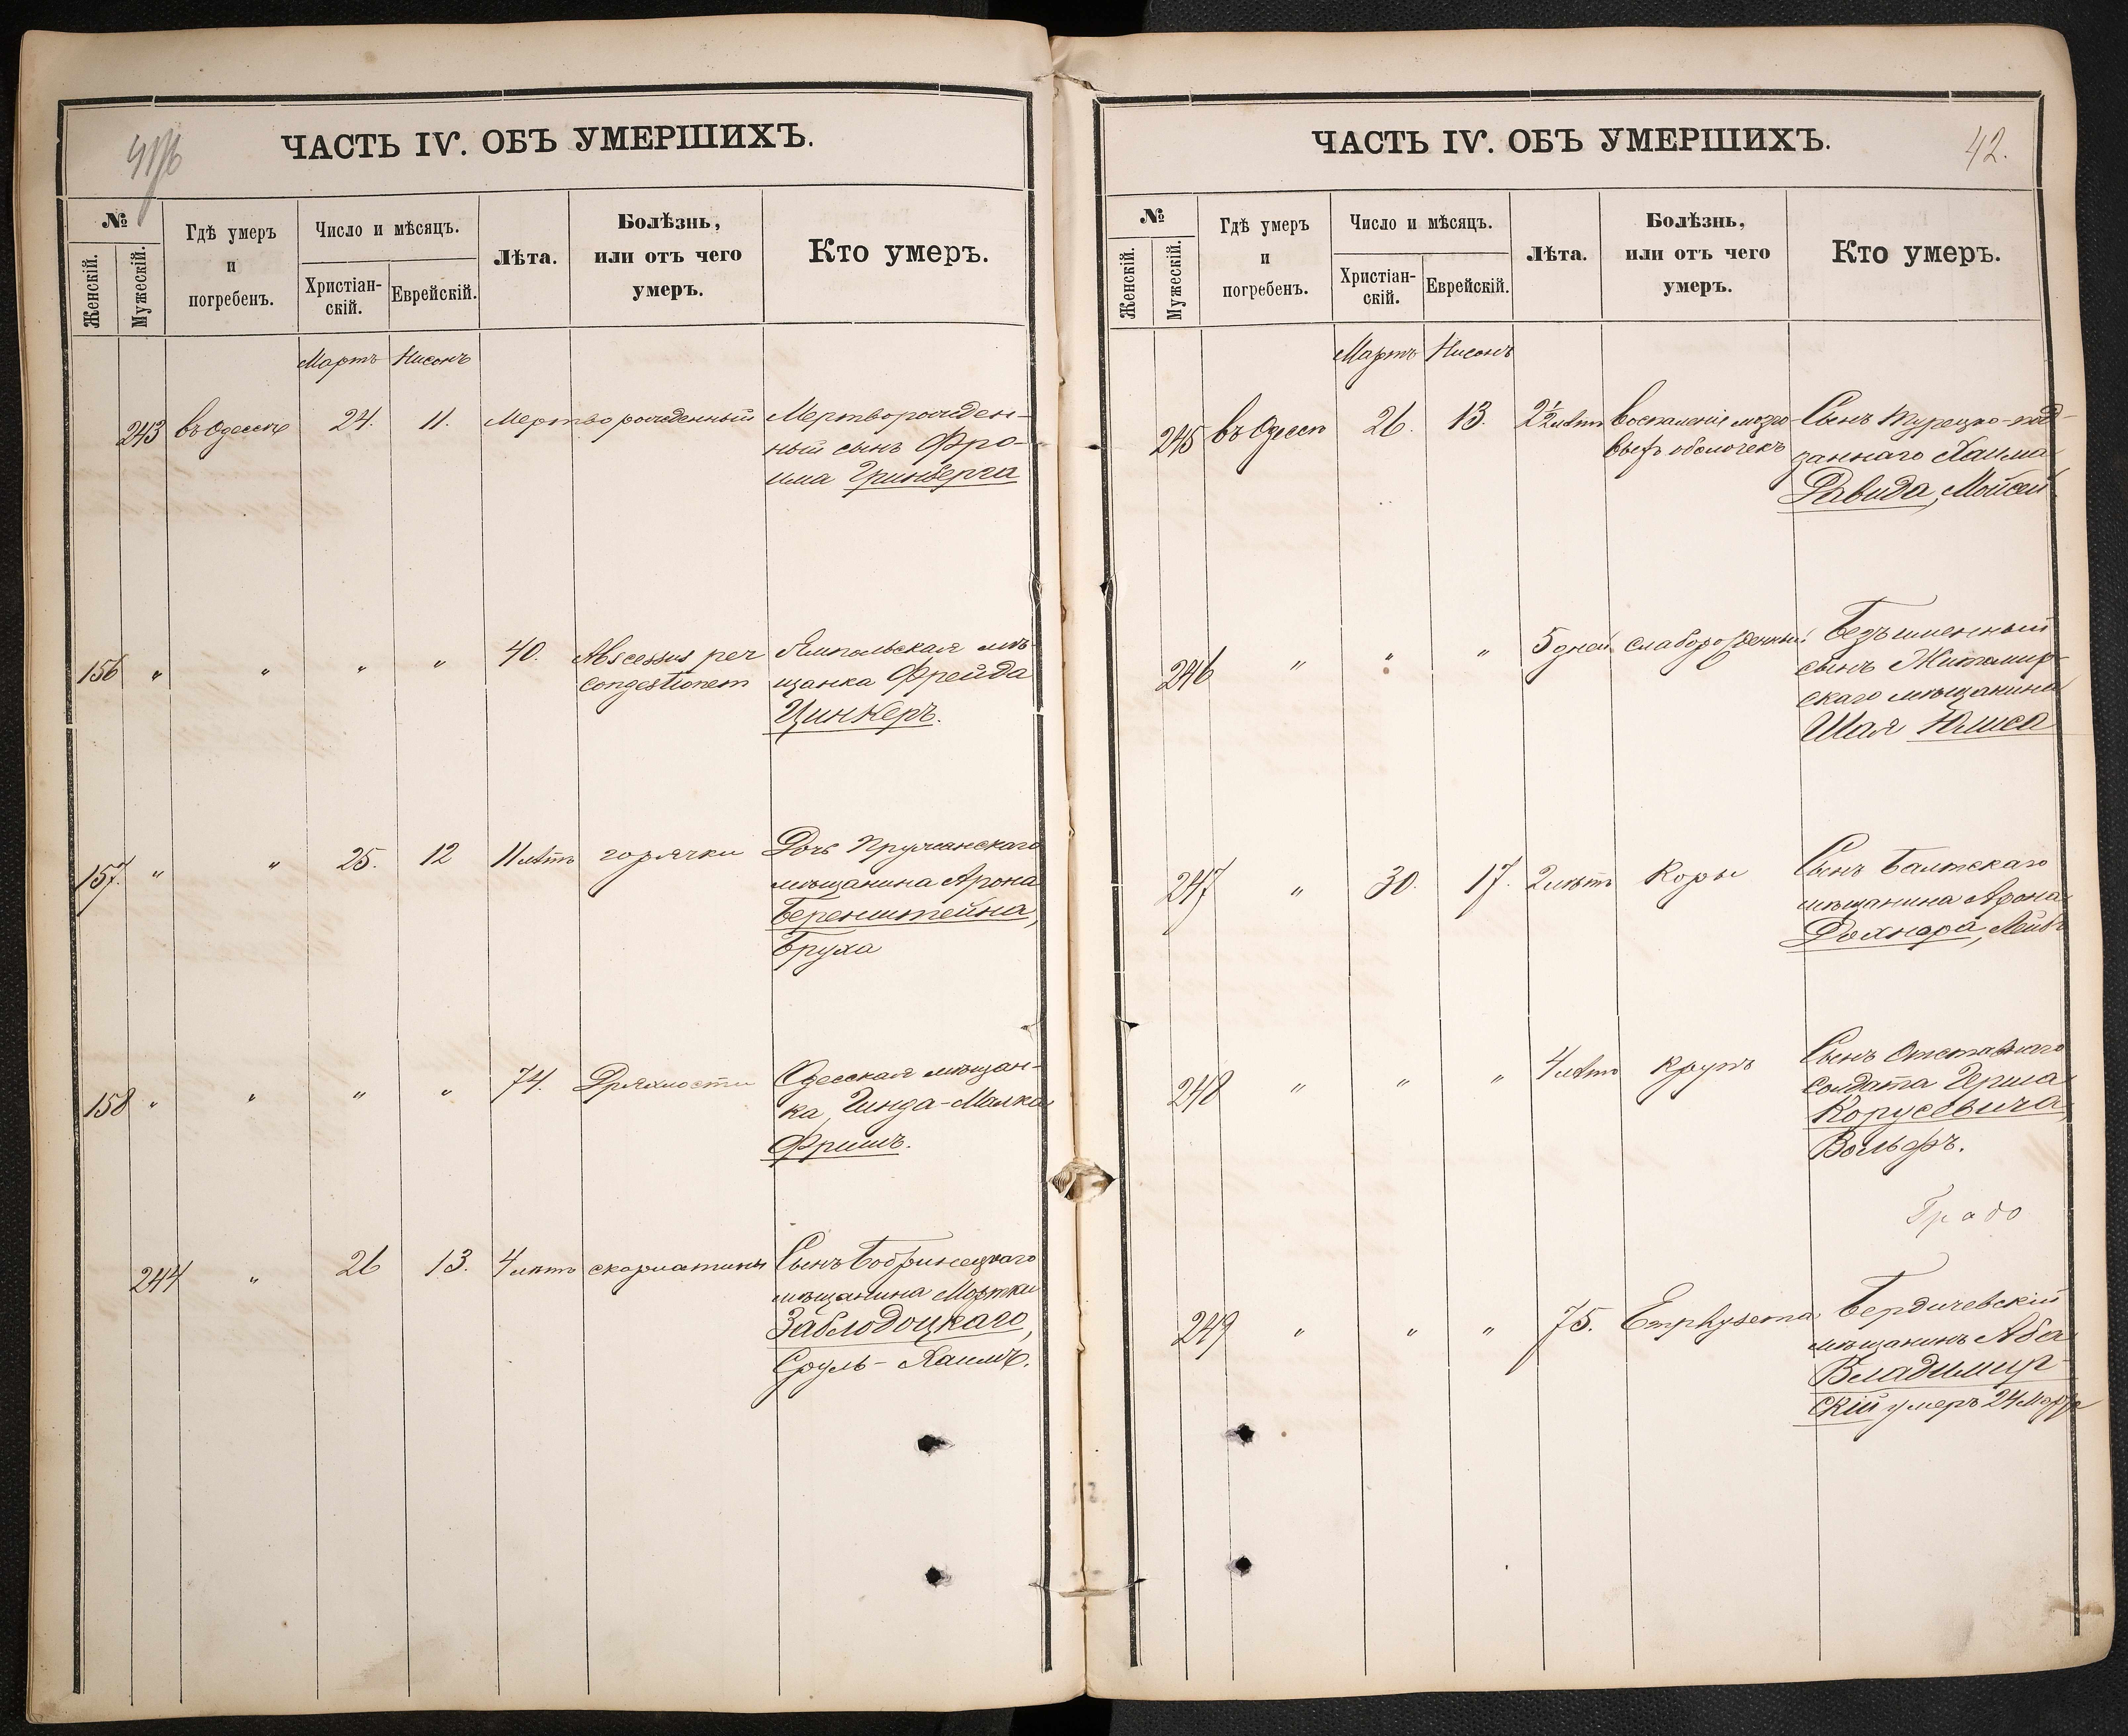 ЧАСТЬ IV. ОБЪ УМЕРШИХЪ.
№
Женскій.
Мужескій.
Гдѣ умеръ
и
погребенъ.
Число и мѣсяцъ.
Христіан-
скій.
Еврейскій.
Лѣта.
Болѣзнь,
или отъ чего
умеръ.
Кто умеръ.
Мартъ Нисонъ
243 въ Одессѣ 24. 11. Мертворожденный Мертворожден-
ный сынъ Фро-
има Гринберга
156 " " " " 40. Abscessus per Ямпольская мѣ-
congestionem щанка Фрейда
Цинкеръ.
157. " " 25. 12 11 лѣтъ горячки Дочь Пружанскаго
мѣщанина Арона
Беренштейна,
Бруха
158 " " " " 74. Дряхлости Одесская мѣщан-
ка, Гинда-Малка
Фришъ.
244 " 26 13. 4 лѣтъ скарлатины Сынъ Бобринецкаго
мѣщанина Мортки
Заблодоцкаго,
Сруль-Хаимъ.
ЧАСТЬ IV. ОБЪ УМЕРШИХЪ.
42.
№
Женскій.
Мужескій.
Гдѣ умеръ
и
погребенъ.
Число и мѣсяцъ.
Христіан-
скій.
Еврейскій.
Лѣта.
Болѣзнь,
или отъ чего
умеръ.
Кто умеръ.
Мартъ Нисонъ
245 въ Одессѣ 26. 13. 2½ лѣтъ Воспаленія мозго- Сынъ Турецко-под-
выхъ оболочекъ даннаго Хаима
Давида, Мойсей
246 " " " 5 дней слаборожденный Безъименный
сынъ Житомир-
скаго мѣщанина
Шая Юлиса
247 " 30. 17. 2 лѣтъ Коры Сынъ Балтскаго
мѣщанина Арона
Лейбъ
248 " " " 4 лѣтъ крупъ Сынъ Отставнаго
солдата Герша
Корусевича,
Вольфъ.
249 " " " 75. Emphysema Бердичевскій
мѣщанинъ Аба
Владимир-
скій умеръ 24 Марта